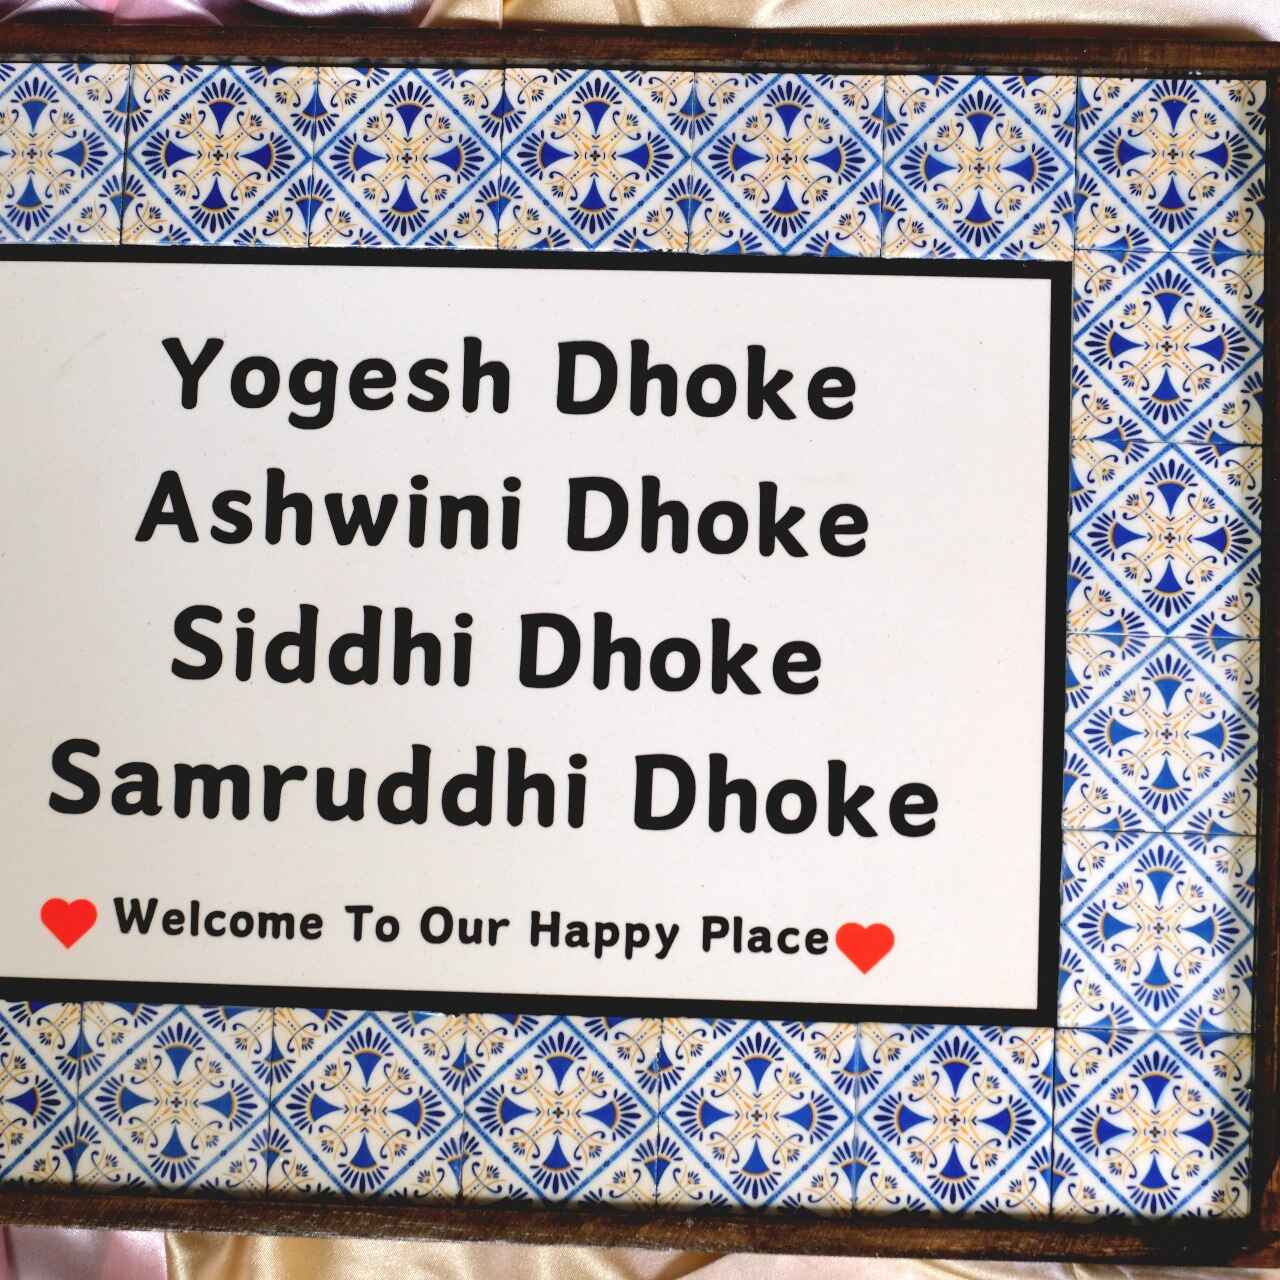 Yogesh Dhoke
Ashwini Dhoke
Siddhi Dhoke
Samruddhi Dhoke
Welcome To Our Happy Place